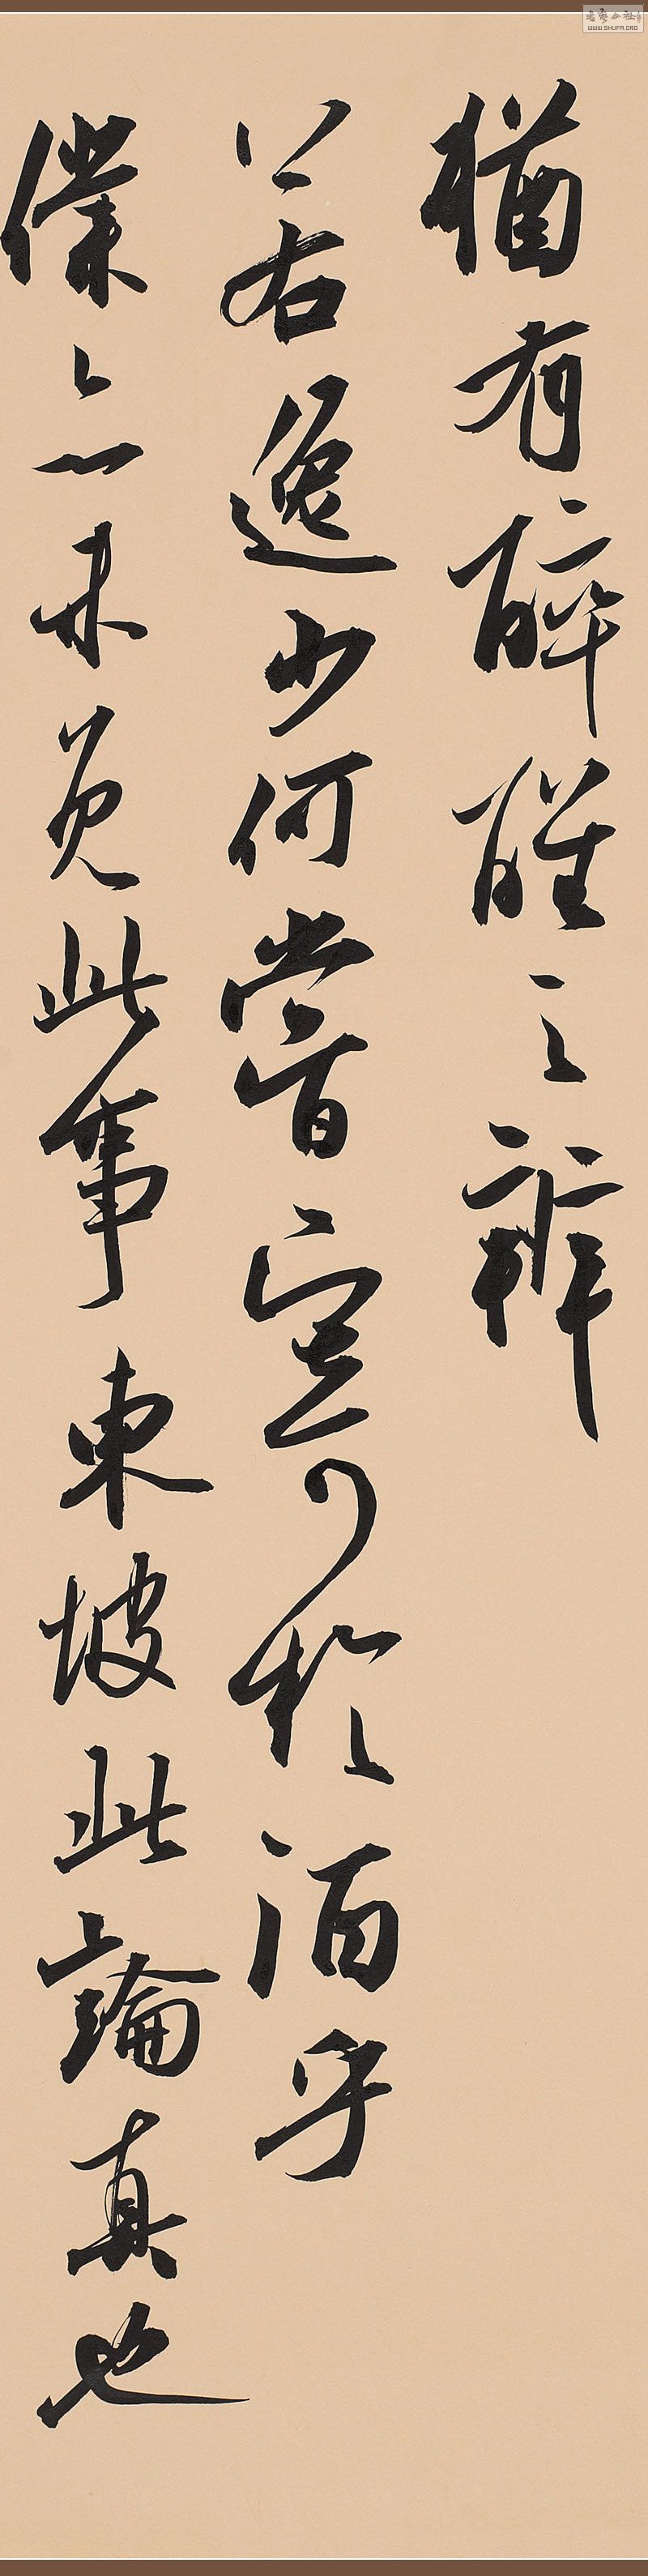 猶有醉醒之辨
若右逸少何嘗寄於酒乎
僕亦未免此事東坡此論真也
WWW.SHUFA.ORG